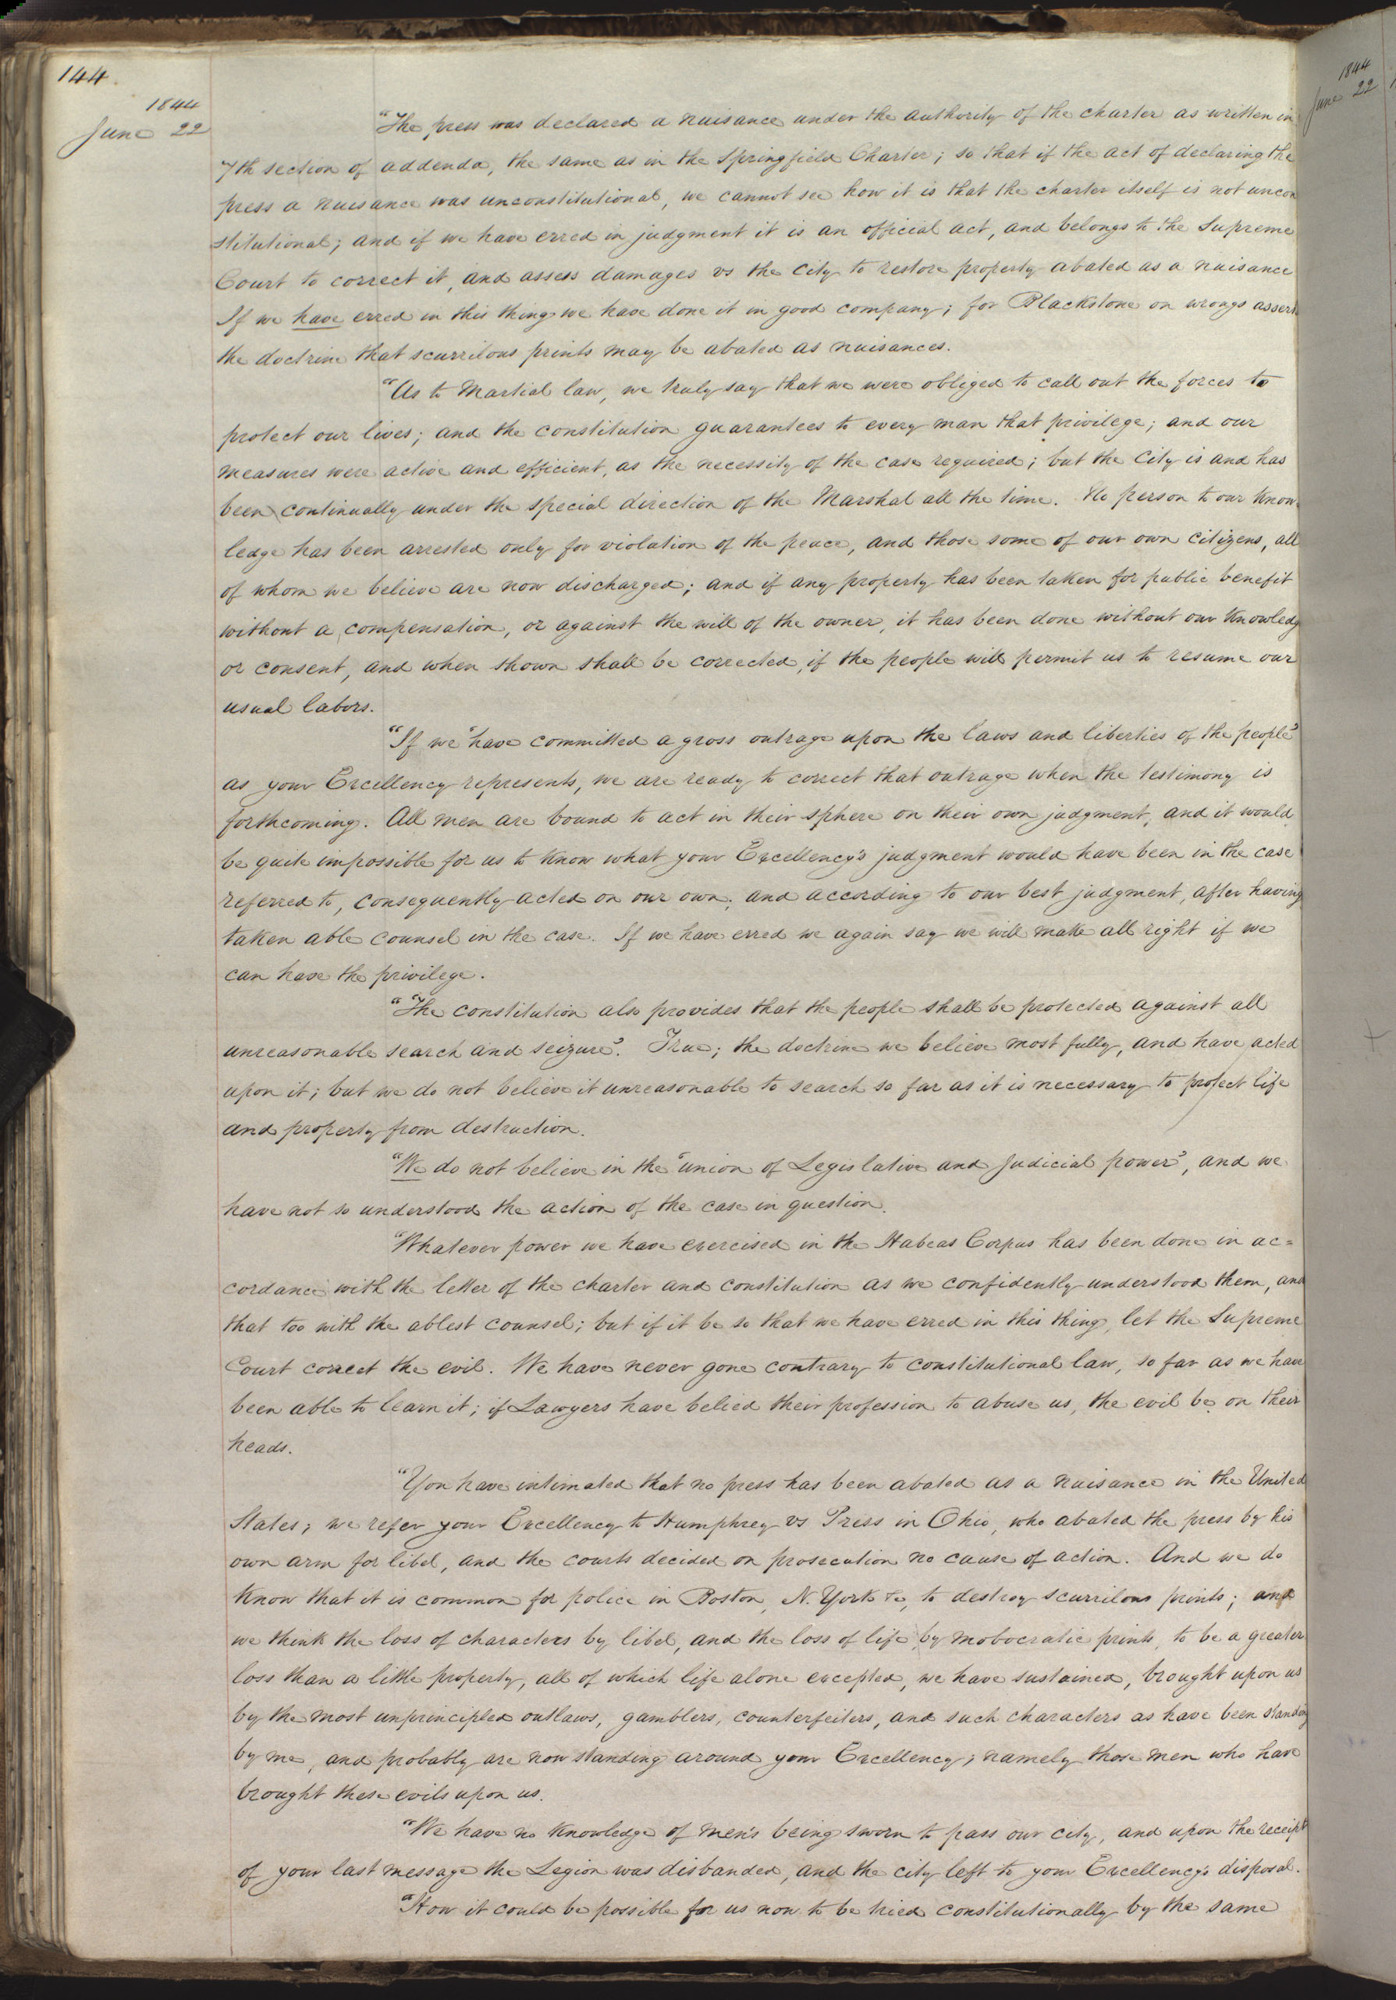 144.
1844
June 22
"The press was declared a nuisance under the authority of the charter as written in
7th section of addenda, the same as in the Springfield Charter; so that if the act of declaring the
press a nuisance was unconstitutional, we cannot see how it is that the charter itself is not uncon
stitutional; and if we have erred in judgment it is an official act, and belongs to the Supreme
Court to correct it, and assess damages vs the City to restore property abated as a nuisance
If we have erred in this thing we have done it in good company; for Blackstone on wrongs asserts
the doctrine that scurrilous prints may be abated as nuisances.
"As to Martial law, we truly say that we were obliged to call out the forces to
protect our lives; and the constitution guarantees to every man that privilege; and our
measures were active and efficient, as the necessity of the case required; but the City is and has
been continually under the special direction of the Marshal all the time. No person to our know-
ledge has been arrested only for violation of the peace, and those some of our own citizens, all
of whom we believe are now discharged; and if any property has been taken for public benefit
without a compensation, or against the will of the owner, it has been done without our knowledg
or consent, and when shown shall be corrected, if the people will permit us to resume our
usual labors.
"If we "have committed a gross outrage upon the laws and liberties of the people"
as your Excellency represents, we are ready to correct that outrage when the testimony is
forthcoming. All men are bound to act in their sphere on their own judgment, and it would
be quite impossible for us to know what your Excellency's judgment would have been in the case
referred to, consequently acted on our own, and according to our best judgment, after having
taken able counsel in the case. If we have erred we again say we will make all right if we
can have the privilege.
"“The constitution also provides that the people shall be protected against all
unreasonable search and seizure". True; the doctrine we believe most fully, and have acted
upon it; but we do not believe it unreasonable to search so far as it is necessary to protect life
and property from destruction.
"We do not believe in the "union of Legislative and Judicial power", and we
have not so understood the action of the case in question.
"Whatever power we have exercised in the Habeas Corpus has been done in ac=
cordance with the letter of the charter and constitution as we confidently understood them, and
that too with the ablest counsel; but if it be so that we have erred in this thing, let the Supreme
Court correct the evil. We have never gone contrary to constitutional law, so far as we have
been able to learn it; if Lawyers have belied their profession to abuse us, the evil be on their
heads.
"You have intimated that no press has been abated as a nuisance in the United
States; we refer your Excellency to Humphrey vs Press in Ohio, who abated the press by his
own arm for libel, and the courts decided on prosecution no cause of action. And we do
know that it is common for police in Boston, N. York &c, to destroy scurrilous prints; and
we think the loss of characters by libel, and the loss of life by mobocratic prints, to be a greater
loss than a little property, all of which life alone excepted, we have sustained, brought upon us
by the most unprincipled outlaws, gamblers, counterfeiters, and such characters as have been standing
by me, and probably are now standing around your Excellency; namely those men who have
brought these evils upon us.
"We have no knowledge of men's being sworn to pass our city, and upon the receipt
of your last message the Legion was disbanded, and the city left to your Excellency's disposal.
"How it could be possible for us now to be tried constitutionally by the same
1844
June 22